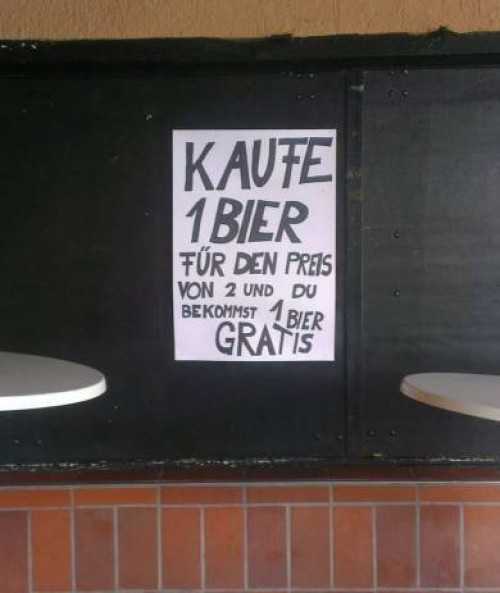 KAUFE
1 BIER
FÜR DEN PREIS
VON 2 UND DU
BEKOMMST 1 BIER
GRATIS